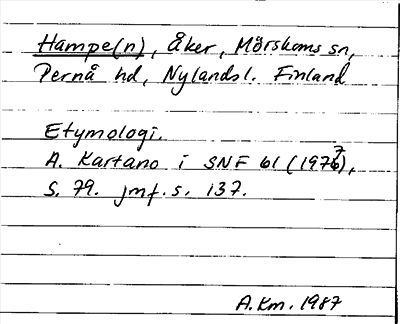 Hampe(n), Åker, Mörskoms sn,
Pernå hd, Nylandsl. Finland
Etymologi.
A. Kartano i SNF 61 (1977),
S. 79. jmf. s. 137.
A.Km. 1987